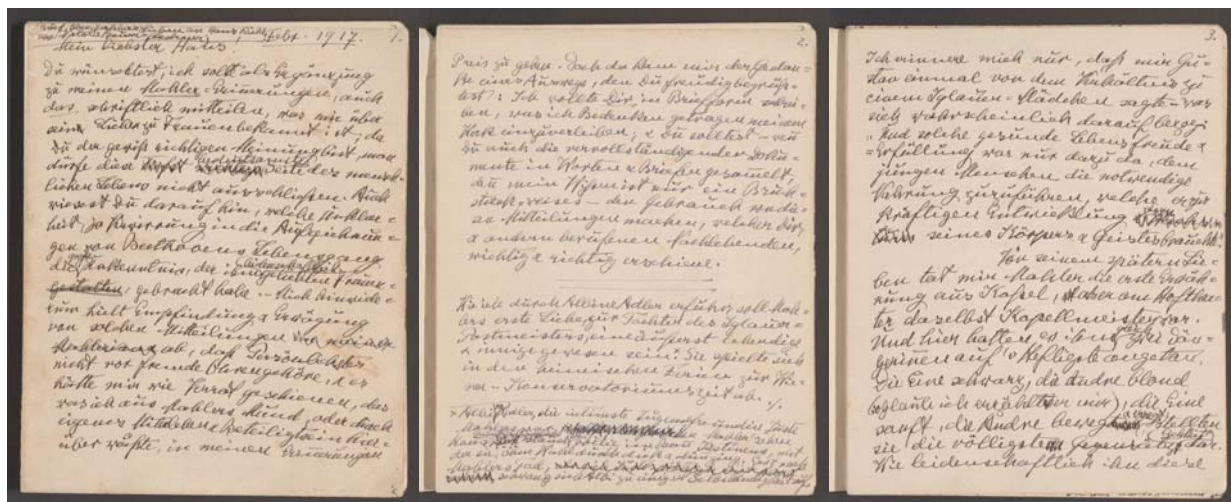 Febr. 1917. 1.
Mein liebster Hans!
Du wünschtest, ich sollt als Ergänzung
zu meinen Mahler-Erinnerungen, auch
das schriftlich mitteilen, was mir über
seine Liebe zu Frauen bekannt ist; da
Du der gewiß richtigen Meinung bist, man
dürfe diese Seite des mensch-
lichen Lebens nicht ausschließen. Auch
wiesest Du darauf hin, welche Unklar-
heit, ja Verwirrung in die Aufzeichnun-
gen von Beethovens Lebensgang
die Unkenntnis, der geliebten Frauen-
gestalten, gebracht habe. – Mich hinwider-
um hielt Empfindung & Erwägung
von solchen Mitteilungen
ab, daß Persönliches
nicht vor fremde Ohren gehöre, es
hätte mir wie Verrat geschienen, das
was ich aus Mahlers Mund, oder durch
eigenes Miterleben & Beteiligtsein hier-
über wüßte, in meinen Erinnerungen
2.
Preis zu geben. Doch da kam mir der Gedan-
ke eines Auswegs, den Du freudig begrüß-
test: Ich sollte Dir, in Briefform schrei-
ben, was ich Bedenken getragen meinem
Werk einzuverleiben; & Du solltest – wenn
Du auch die vervollständigenden Doku-
mente in Worten & Briefen gesammelt,
da mein Wissen ist nur ein Bruch-
stück, weises – den Gebrauch von die-
sen Mitteilungen machen, welcher Dir,
& andern berufenen Nachlebenden,
wichtig & richtig erschiene.
Wie ich durch Albine Adler erfuhr, soll Mah-
lers erste Liebe zur Tochter des Iglauer-
Postmeisters, eine äußerst lebendige
& innige gewesen sein. Sie spielte sich
in den heimischen Ferien zur Wie-
ner-Konservatoriumszeit ab.
Albine Adler, die intimste Jugendfreundin Justi
Mahlers war
3.
Ich erinnere mich nur, daß mir Gu-
stav einmal von dem Verhältnis zu
einem Iglauer-Mädchen sagte – was
sich wahrscheinlich darauf bezog:
„Und solche gesunde Lebensfreude &
-Erfüllung war nur dazu da, dem
jungen Menschen die notwendige
Nahrung zuzuführen, welche er zur
kräftigen Entwicklung
seines Körpers & Geistes brauchte."
Von seinem spätern Lie-
ben tat mir Mahler die erste Erwäh-
nung aus Kassel, wo er am Hofthea-
ter daselbst Kapellmeister war.
Und hier hatten es ihm gleich zwei Sän-
gerinnen auf's Heftigste angetan.
Die Eine schwarz, die Andre blond
(so glaub ich erzählt er mir), die Eine
sanft, die Andre bewegt, stellten
sie die völligsten Gegensätze dar.
Wie leidenschaftlich ihn diese